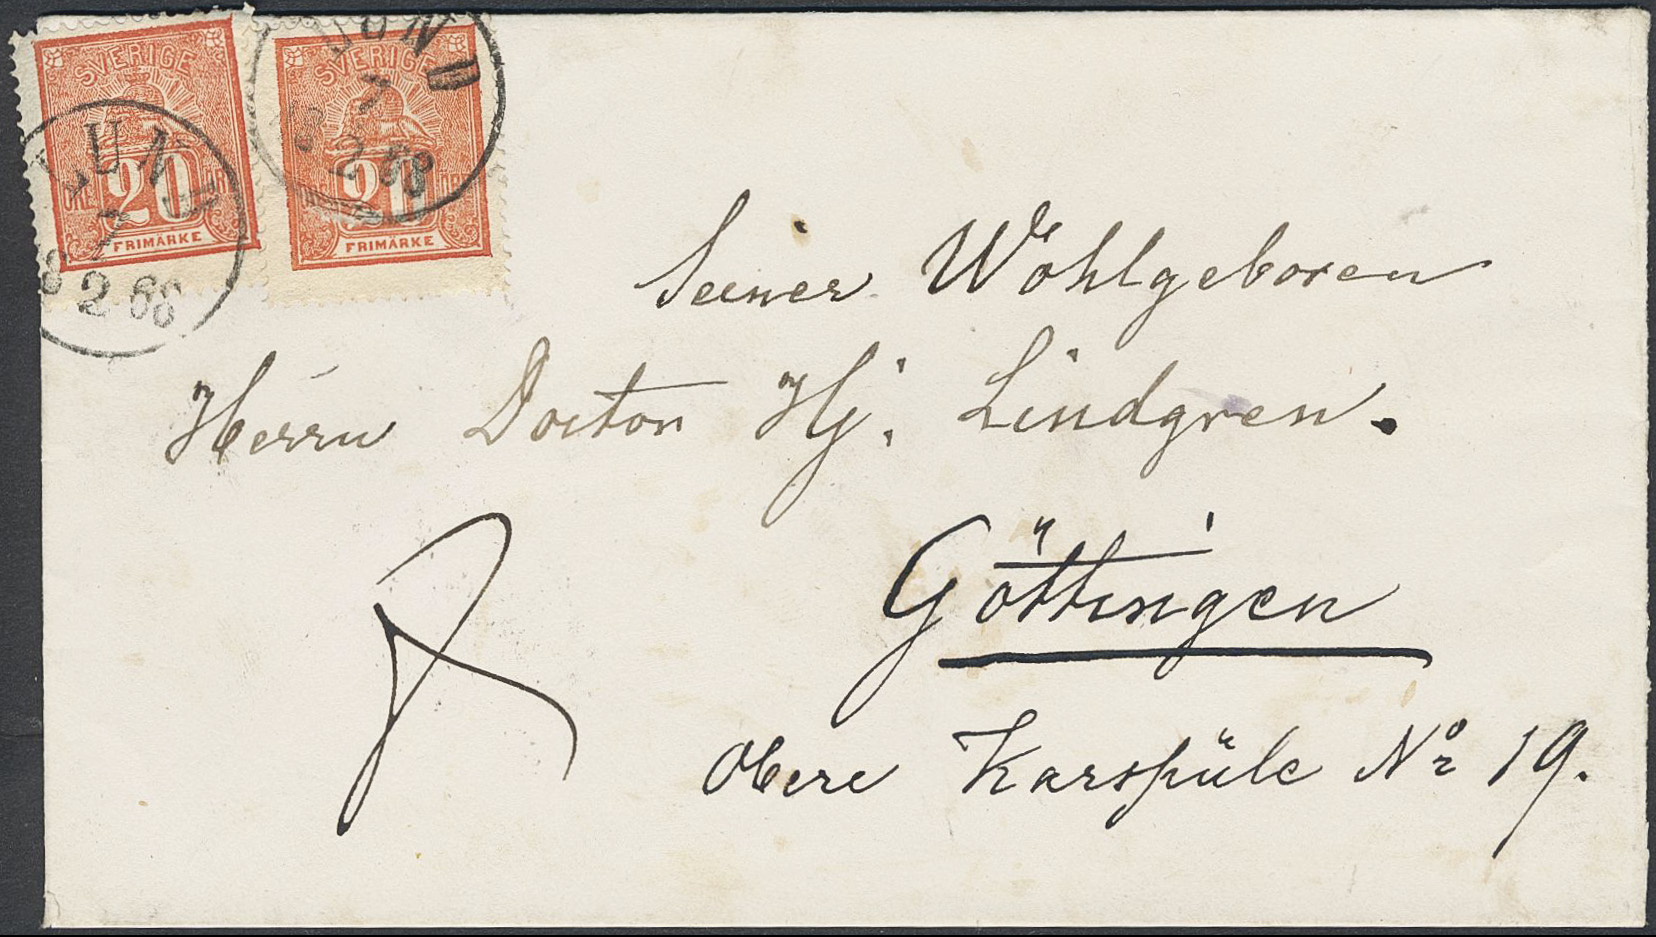 SVERIGE
20
ÖRE ÖRE
FRIMÄRKE
SVERIGE
20
ÖRE
FRIMÄRKE
LUND
7
2 68
LUND
7
2 68
Seiner Wohlgeboren
Herrn Doctor Hj. Lindgren.
Göttingen
Obere Karspüle No 19.